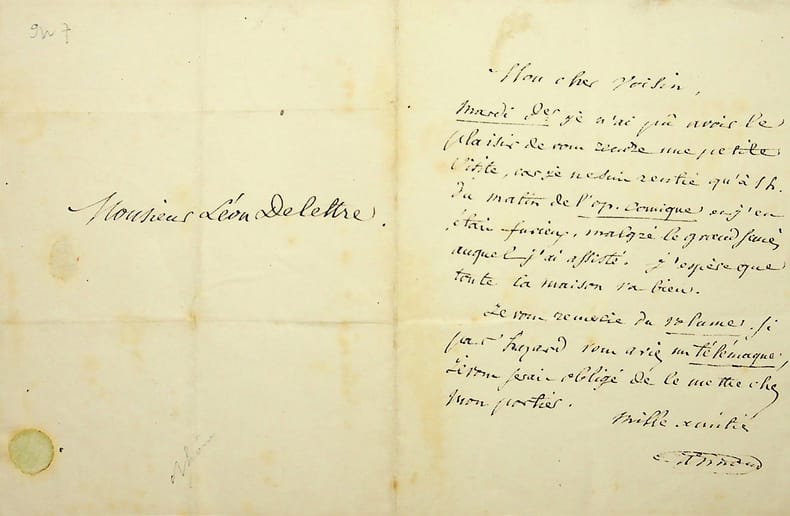 Monsieur Léon Delettre.
Mon cher voisin,
Mardi der je n'ai pû avoir le
plaisir de vous rendre une petite
visite, car je ne suis rentré qu'à 1 h.
du matin de l'op. comique et j'en
étais furieux, malgré le grand succès
auquel j'ai assisté. j'espère que
toute la maison va bien.
Je vous remercie du volume. si
par hazard vous aviez un télémaque,
je vous serais obligé de le mettre chez
mon portier.
Mille amitiés